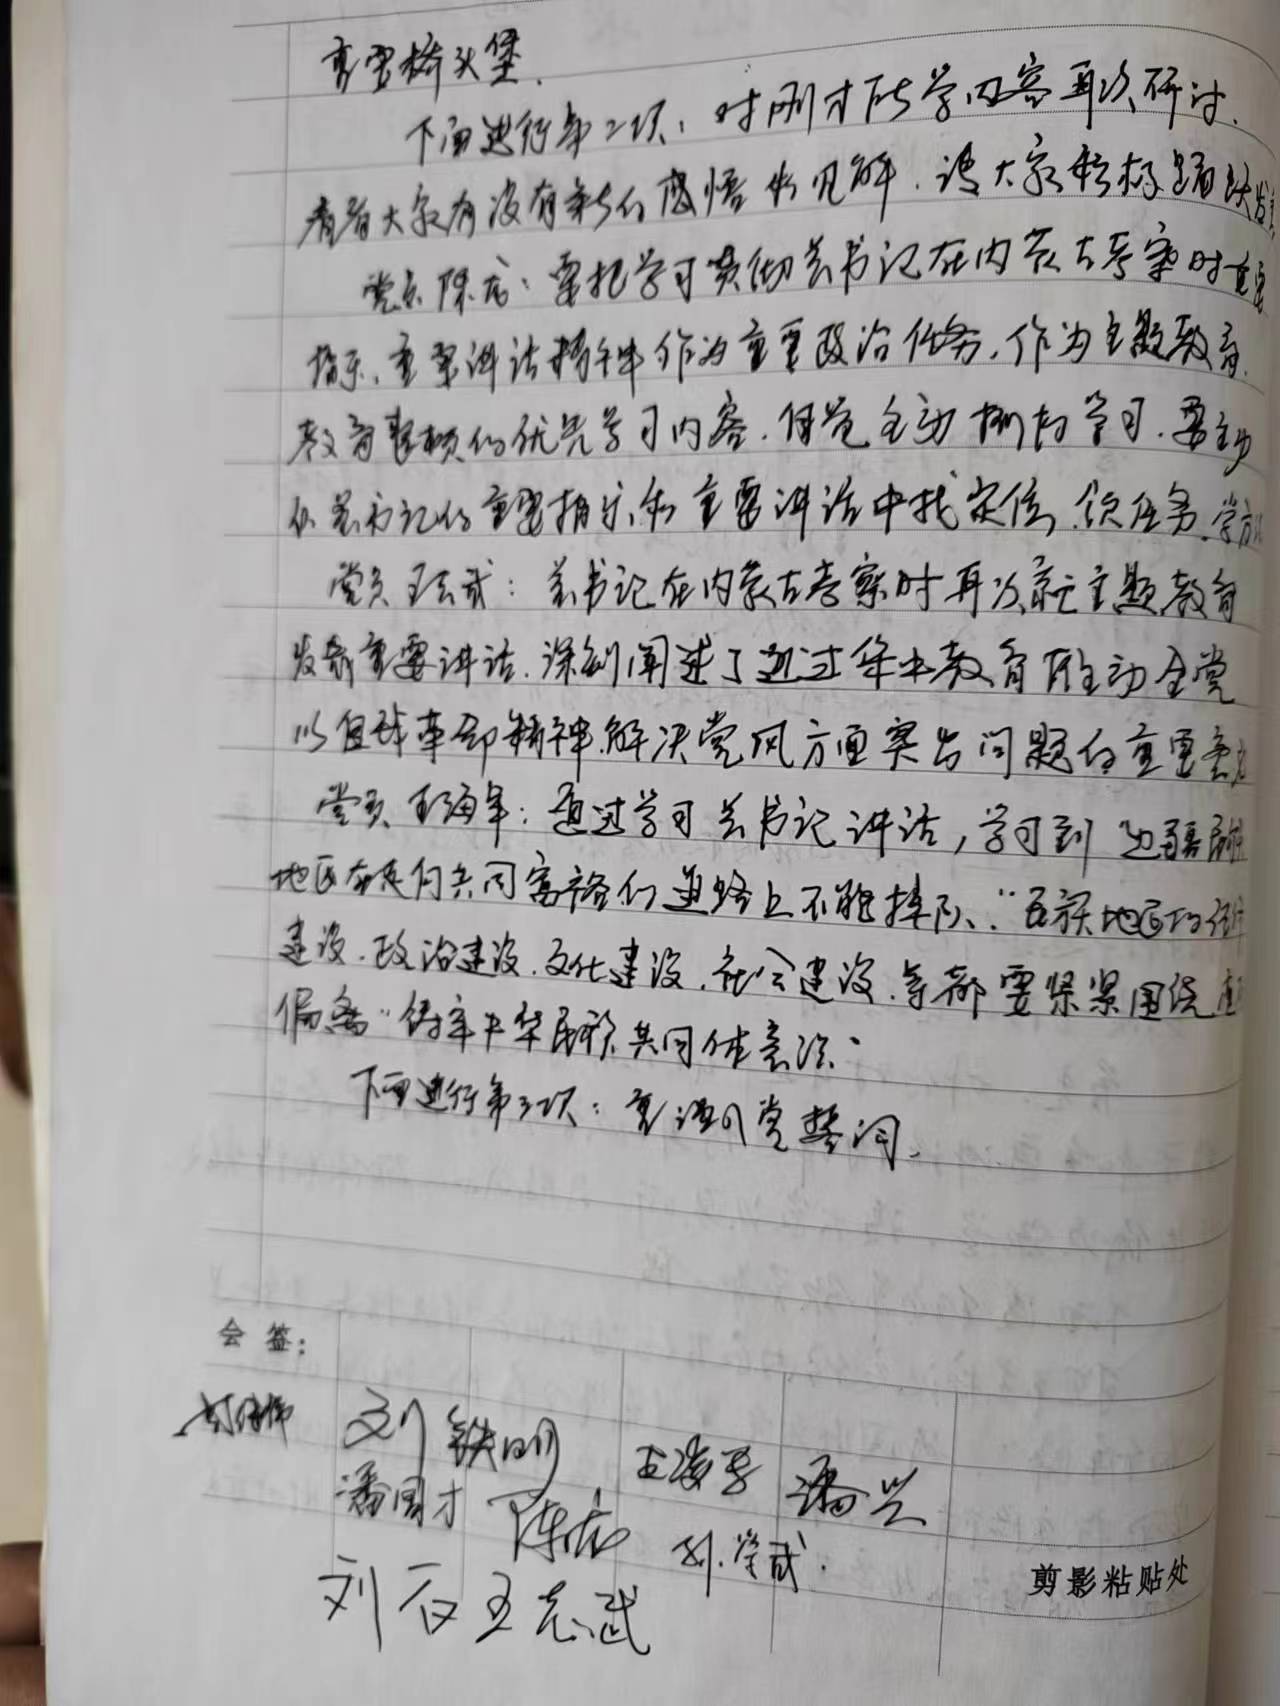 重要桥头堡.
下面进行第二项：对刚才所学内容再次研讨.
看看大家有没有新的感悟和见解.请大家积极踊跃发言
党员陈龙：要把学习贯彻总书记在内蒙古考察时重要
指示、重要讲话精神作为重要政治任务.作为主题教育.
教育整顿的优先学习内容.自觉主动 学习.要主动
从总书记的重要指示和重要讲话中找定位、领任务.学方法
党员王志武：总书记在内蒙古考察时再次就主题教育
发表重要讲话.深刻阐述了通过集中教育推动全党
以自我革命精神.解决党风方面突出问题的重要意义
党员王海军：通过学习总书记讲话，学习到"边疆民族
地区在走向共同富裕的道路上不能掉队."民族地区的经济
建设.政治建设.文化建设.社会建设.等都要紧紧围绕
"铸牢中华民族共同体意识"
下面进行第三项：重温入党誓词.
会签：
刘铁明 王海军 潘兴
潘国才 陈龙 刘学武.
刘石 王志武
剪影粘贴处